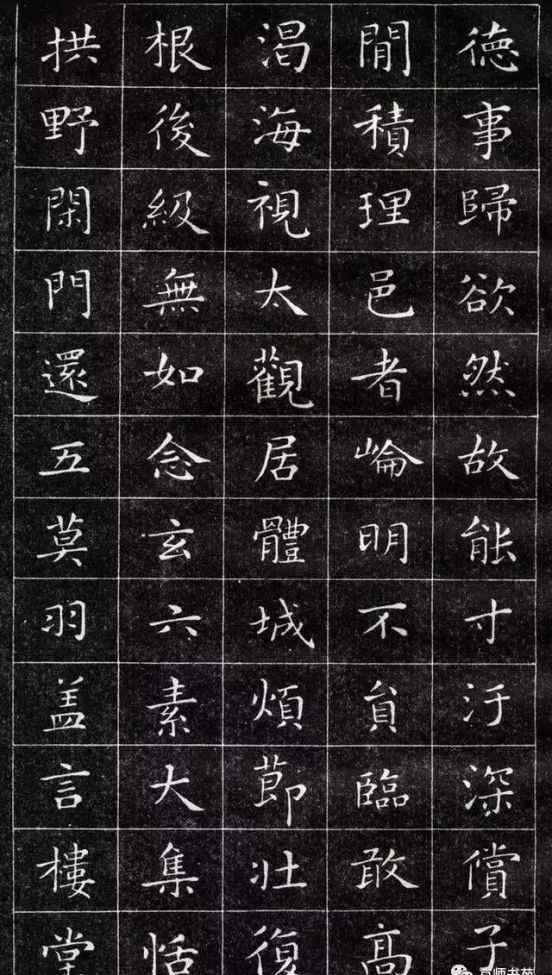 德事歸欲然故能寸汙深償子
閒積理邑者崘明不貟臨敢高
渴海視太觀居體城煩莭壯復
根後級無如念玄六素大集恬
拱野閑門還五莫羽盖言樓堂